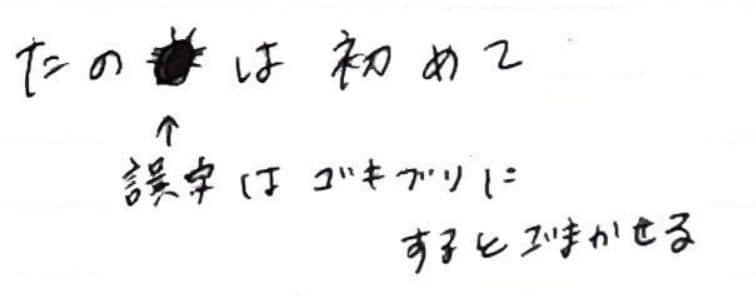 たの は初めて
↑
誤字はゴキブリに
するとごまかせる